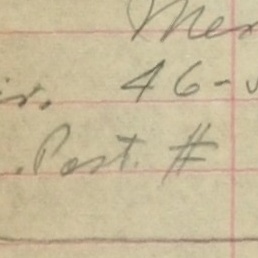 Mer
is. 46-
. Post. #